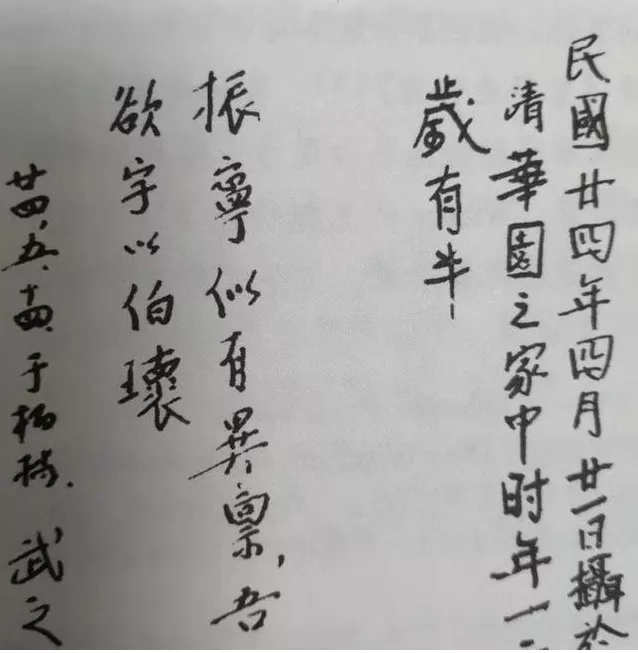 民國廿四年四月廿一日攝於
清華園之家中时年
歲有半
振寧似有異稟,吾
欲字以伯瓌
廿四、五、十四于柏林. 武之